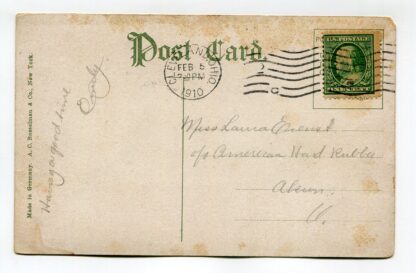 Post Card.
CLEVELAND, OHIO
FEB 5
PM
1910
U.S. POSTAGE
ONE CENT
Made in Germany. A. C. Bosselman & Co., New York.
Having a good time
Miss Laura
c/o American Hard Rubber
Akron,
O.